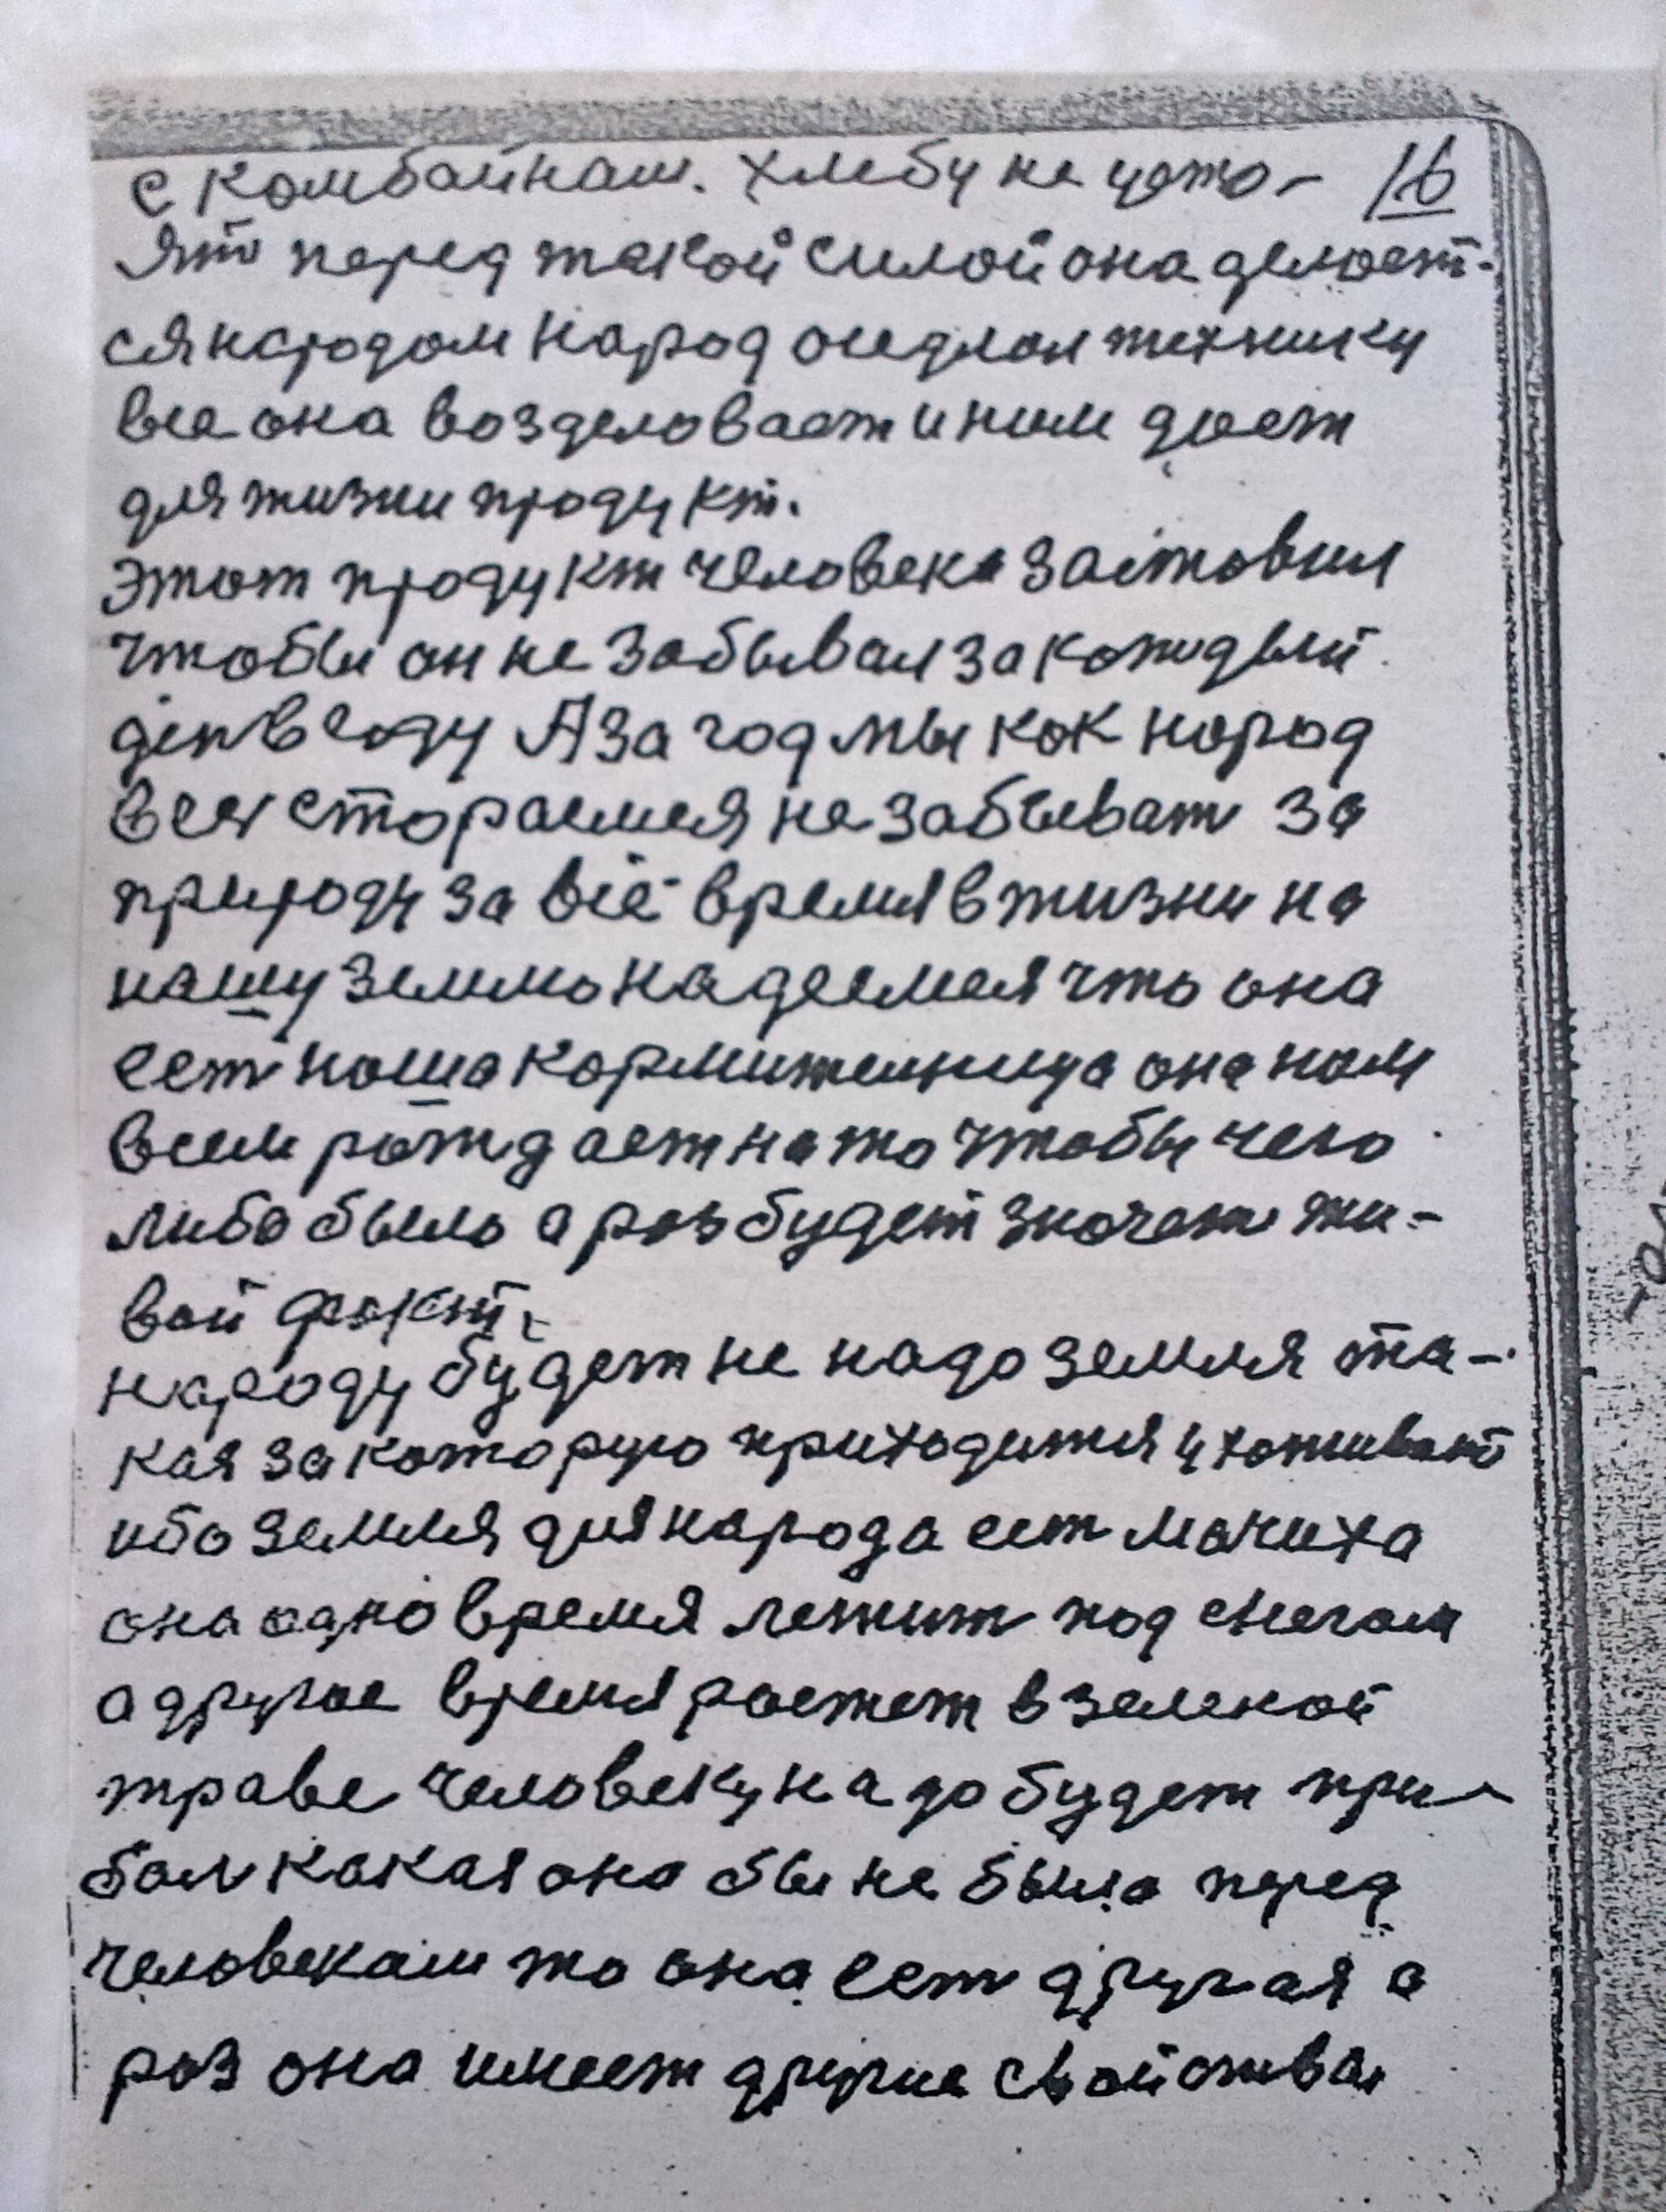 с комбайнам. Хлебу не усто- 16
ят перед такой силой она делает-
ся народом народ оседлал технику
все она возделовает и ним дает
для жизни продукт.
Этот продукт человека заставил
чтобы он не забывал за кождый
ден в году А за год мы как народ
все стораемся не забыват за
природу за всё время в жизни на
нашу землю надеемся что она
ест наша кормителница она нам
всем рождает на то чтобы чего
либо было а раз будет значет жи-
вой факт.
народу будет не надо земля та-
кая за которую приходится ухаживат
ибо земля для народа ест мачиха
она одно время лежит под снегом
а другое время растет в зеленой
траве человеку надо будет при-
бал какая она бы не была перед
человекам то она ест другая а
раз она имеет другие свойства